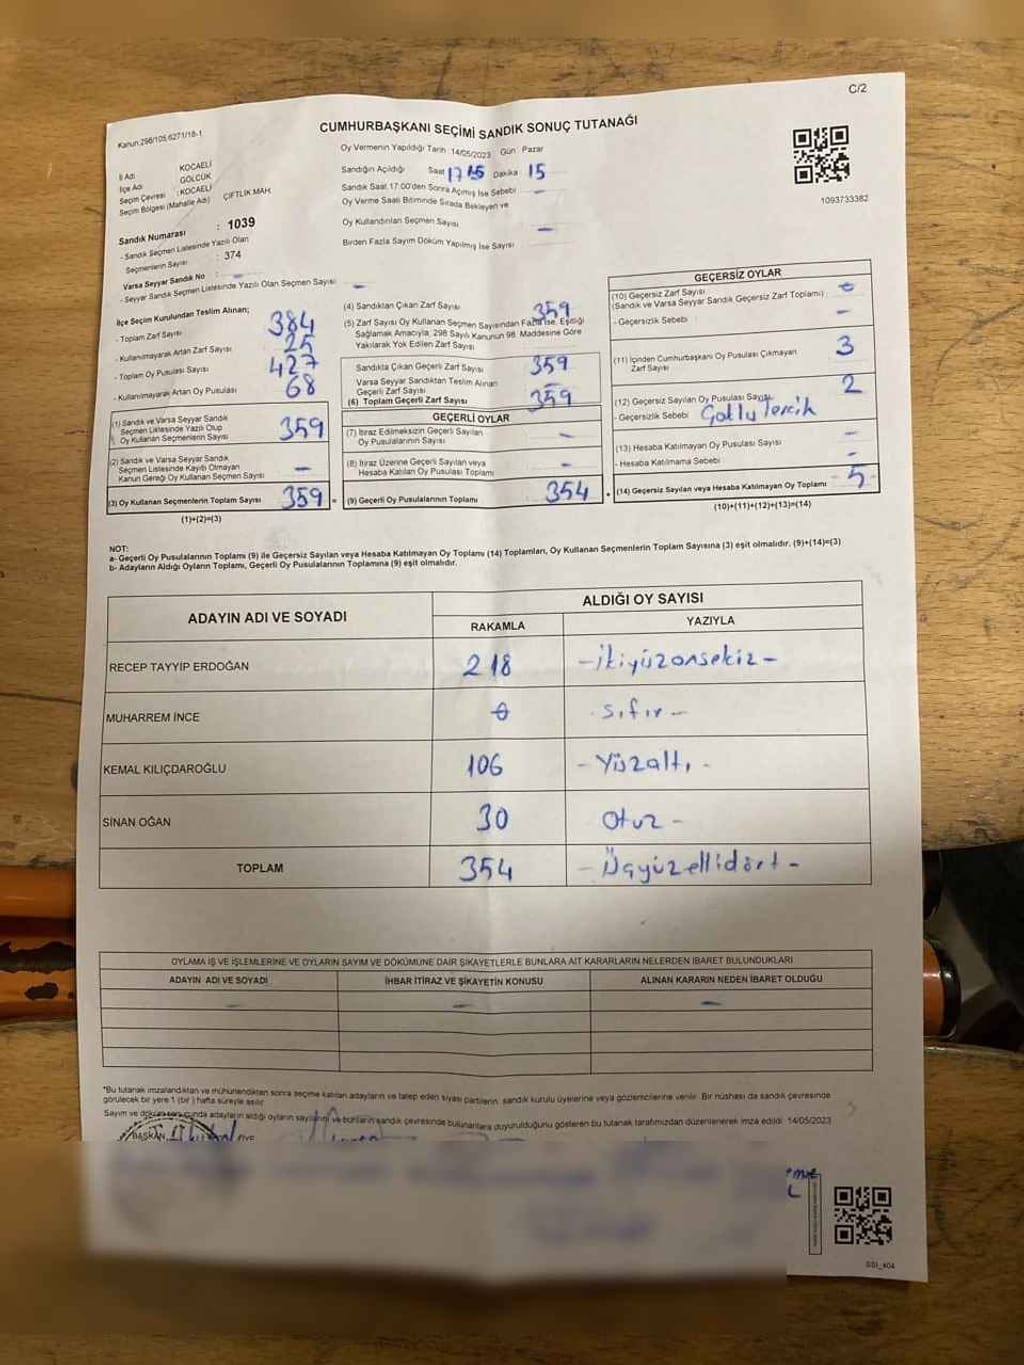 C/2
CUMHURBAŞKANI SEÇİMİ SANDIK SONUÇ TUTANAĞI
Kanun:298/105,6271/18-1
Oy Vermenin Yapıldığı Tarih :14/05/2023 Gün: Pazar
İl Adı : KOCAELİ
İlçe Adı : GÖLCÜK
Seçim Çevresi : KOCAELİ
Seçim Bölgesi (Mahalle Adı) ÇİFTLİK MAH.
Sandığın Açıldığı Saat 17 Dakika 15
Sandık Saat 17:00'den Sonra Açımış İse Sebebi –
Oy Verme Saati Bitiminde Sırada Bekleyen ve
Oy Kullandırılan Seçmen Sayısı –
Birden Fazla Sayım Döküm Yapılmış İse Sayısı –
1093733382
Sandık Numarası : 1039
- Sandık Seçmen Listesinde Yazılı Olan
Seçmenlerin Sayısı : 374
Varsa Seyyar Sandık No : –
- Seyyar Sandık Seçmen Listesinde Yazılı Olan Seçmen Sayısı –
İlçe Seçim Kurulundan Teslim Alınan;
- Toplam Zarf Sayısı 384
- Kullanılmayarak Artan Zarf Sayısı 25
- Toplam Oy Pusulası Sayısı 427
- Kullanılmayarak Artan Oy Pusulası 68
(1) Sandık ve Varsa Seyyar Sandık
Seçmen Listesinde Yazılı Olup
Oy Kullanan Seçmenlerin Sayısı 359
(2) Sandık ve Varsa Seyyar Sandık
Seçmen Listesinde Kayıtlı Olmayan
Kanun Gereği Oy Kullanan Seçmen Sayısı –
(3) Oy Kullanan Seçmenlerin Toplam Sayısı 359 =
(1)+(2)=(3)
(4) Sandıktan Çıkan Zarf Sayısı 359
(5) Zarf Sayısı Oy Kullanan Seçmen Sayısından Fazla İse, Eşitliği
Sağlamak Amacıyla, 298 Sayılı Kanunun 98. Maddesine Göre
Yakılarak Yok Edilen Zarf Sayısı
Sandıkta Çıkan Geçerli Zarf Sayısı 359
Varsa Seyyar Sandıktan Teslim Alınan
Geçerli Zarf Sayısı
(6) Toplam Geçerli Zarf Sayısı 359
GEÇERLİ OYLAR
(7) İtiraz Edilmeksizin Geçerli Sayılan
Oy Pusulalarının Sayısı –
(8) İtiraz Üzerine Geçerli Sayılan veya
Hesaba Katılan Oy Pusulası Toplamı –
(9) Geçerli Oy Pusulalarının Toplamı 354 +
GEÇERSİZ OYLAR
(10) Geçersiz Zarf Sayısı
(Sandık ve Varsa Seyyar Sandık Geçersiz Zarf Toplamı)
- Geçersizlik Sebebi –
(11) İçinden Cumhurbaşkanı Oy Pusulası Çıkmayan
Zarf Sayısı 3
(12) Geçersiz Sayılan Oy Pusulası Sayısı 2
- Geçersizlik Sebebi
(13) Hesaba Katılmayan Oy Pusulası Sayısı –
- Hesaba Katılmama Sebebi –
(14) Geçersiz Sayılan veya Hesaba Katılmayan Oy Toplamı 5
(10)+(11)+(12)+(13)=(14)
NOT:
a- Geçerli Oy Pusulalarının Toplamı (9) ile Geçersiz Sayılan veya Hesaba Katılmayan Oy Toplamı (14) Toplamları, Oy Kullanan Seçmenlerin Toplam Sayısına (3) eşit olmalıdır. (9)+(14)=(3)
b- Adayların Aldığı Oyların Toplamı, Geçerli Oy Pusulalarının Toplamına (9) eşit olmalıdır.
ADAYIN ADI VE SOYADI
ALDIĞI OY SAYISI
RAKAMLA YAZIYLA
RECEP TAYYİP ERDOĞAN 218 – ikiyüzonsekiz –
MUHARREM İNCE 0 sıfır –
KEMAL KILIÇDAROĞLU 106 – Yüzaltı –
SİNAN OĞAN 30 Otuz –
TOPLAM 354 – Üçyüzellidört –
OYLAMA İŞ VE İŞLEMLERİNE VE OYLARIN SAYIM VE DÖKÜMÜNE DAİR ŞİKAYETLERLE BUNLARA AİT KARARLARIN NELERDEN İBARET BULUNDUKLARI
ADAYIN ADI VE SOYADI İHBAR İTİRAZ VE ŞİKAYETİN KONUSU ALINAN KARARIN NEDEN İBARET OLDUĞU
– – –
*Bu tutanak imzalandıktan ve mühürlendikten sonra seçime katılan adayların ve talep eden siyasi partilerin, sandık kurulu üyelerine veya gözlemcilerine verilir. Bir nüshası da sandık çevresinde
görülecek bir yere 1 (bir) hafta süreyle asılır.
Sayım ve döküm sonucunda adayların aldığı oyların sayılarını ve bunların sandık çevresinde bulunanlara duyurulduğunu gösteren bu tutanak tarafımızdan düzenlenerek imza edildi. 14/05/2023
BAŞKAN ÜYE
SSI_404